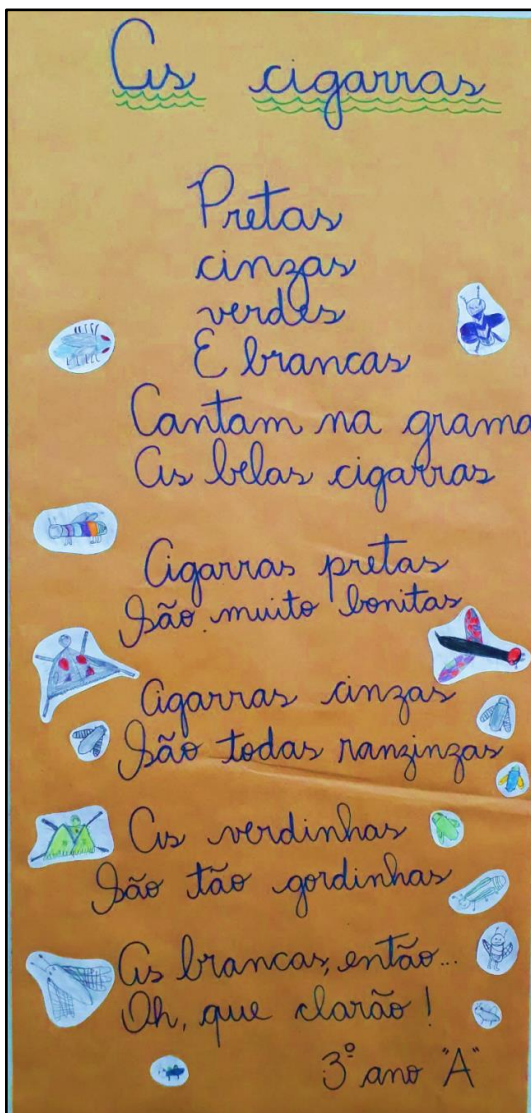 As cigarras
Pretas
cinzas
verdes
E brancas
Cantam na grama
As belas cigarras
Cigarras pretas
São muito bonitas
Cigarras cinzas
São todas ranzinzas
As verdinhas
São tão gordinhas
As brancas, então...
Oh, que clarão!
3º ano "A"